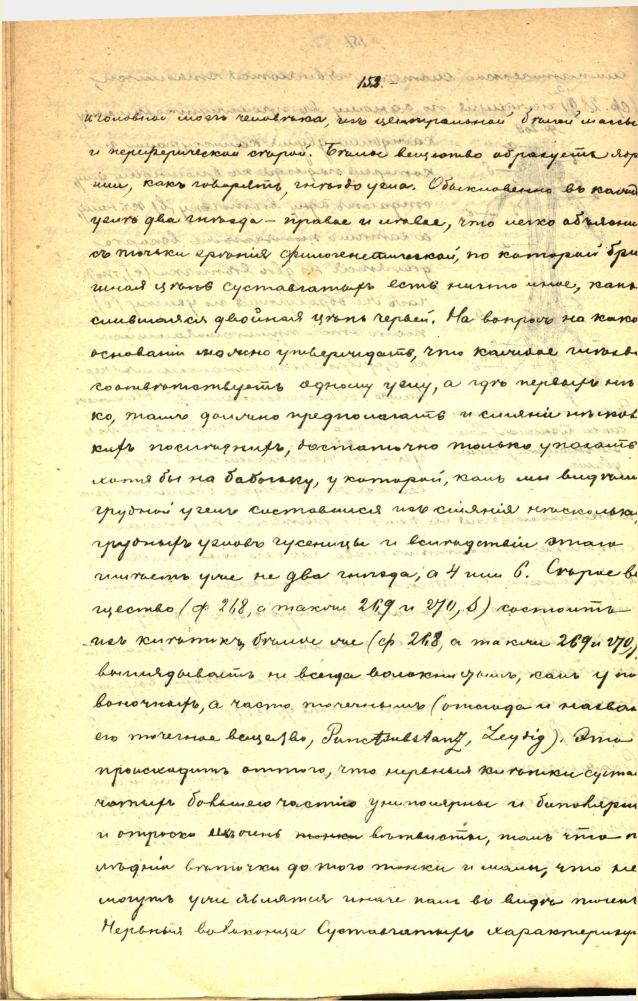 152.-
и головной мозгъ человѣка, изъ центральной бѣлой массы
и периферической сѣрой. Бѣлое вещество образуетъ
какъ говорятъ, гнѣзда узла. Обыкновенно въ кажд
узлѣ два гнѣзда – правое и лѣвое, что легко объясни
съ точки зрѣнія филогенетической, по которой брю
шная цѣпь суставчатыхъ есть ничто иное, какъ
слившаяся двойная цѣпь червей. На вопросъ на како
основаніи можно утверждать, что каждое гнѣздо
соотвѣтствуетъ одному узлу, а гдѣ первыхъ нѣс
ко, тамъ должно предполагать и сліяніе нѣсколь
кихъ послѣднихъ, достаточно только указать
хотя бы на бабочку, у которой, какъ мы видѣли
грудной узелъ составился изъ сліянія нѣсколькихъ
грудныхъ узловъ гусеницы и вслѣдствіи этого
имѣетъ уже не два гнѣзда, а 4 или 6. Сѣрое ве
щество (ф 268, а также 269 и 270, b) состоитъ
изъ клѣтокъ, бѣлое же (ф 268, а также 269 и 270,
выглядываетъ не всегда волокнистымъ, какъ у по
воночныхъ, а часто точечнымъ (отсюда и назван
его точечное вещество, Punctsubstanz, Leydig). Это
происходитъ оттого, что нервныя клѣтки суста
чатыхъ большею частію униполярны и биполярны
и отростки ихъ очень вѣтвисты, такъ что по
слѣднія вѣточки до того тонки и малы, что не
могутъ уже являться иначе какъ въ видѣ точекъ
Нервныя волоконца Суставчатыхъ характеризую